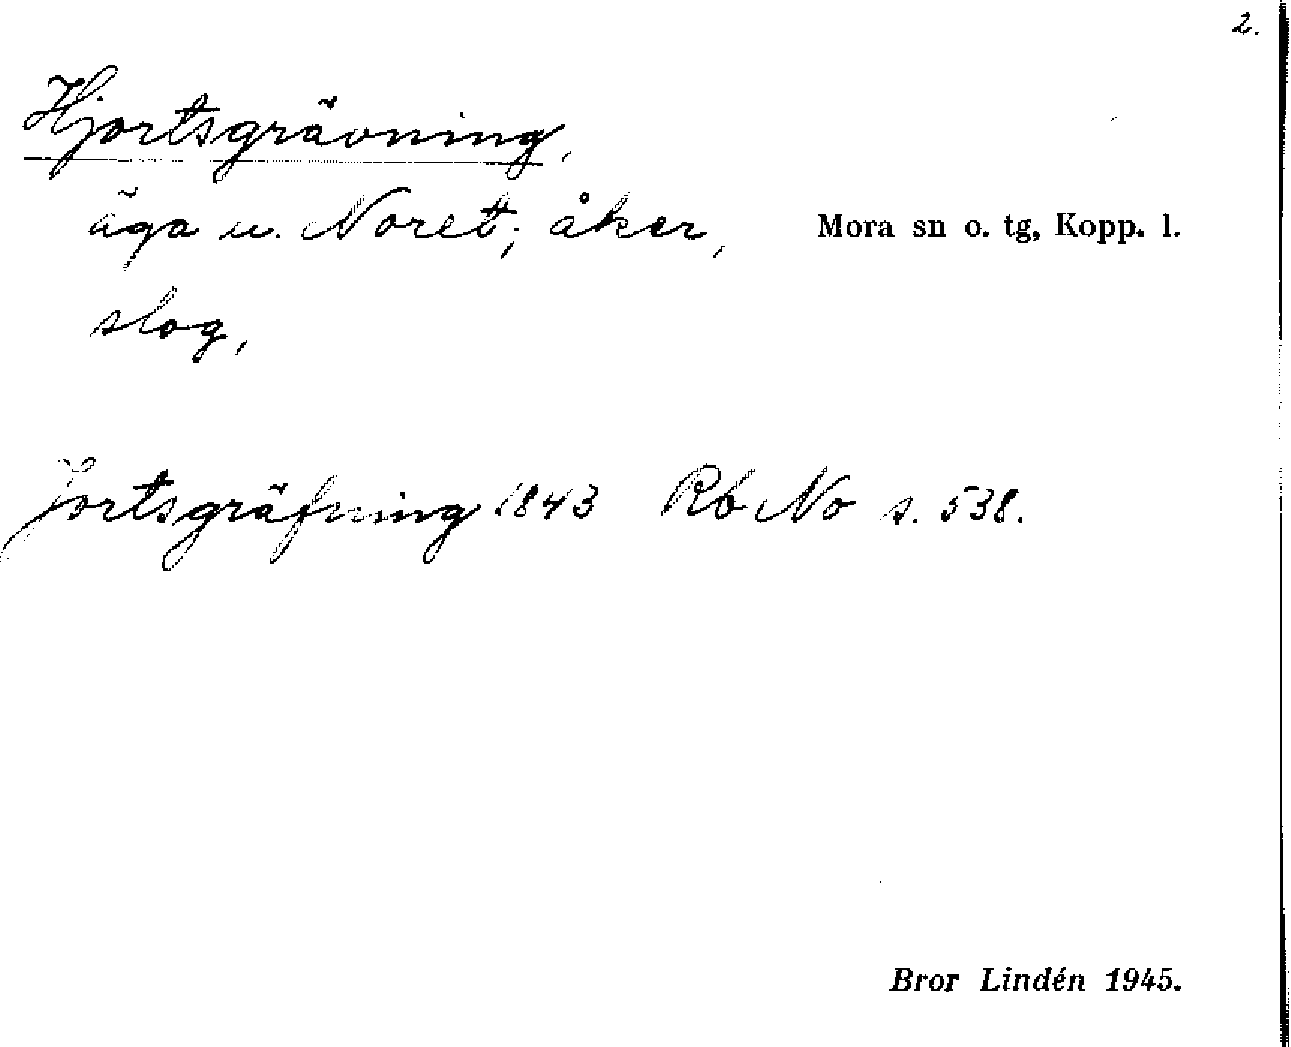 2.
Hjortsgrävning,
äga u. Noret; åker,
Mora sn o. tg, Kopp. l.
slog,
Jortsgräfning 1843 Rb No s. 538.
Bror Lindén 1945.